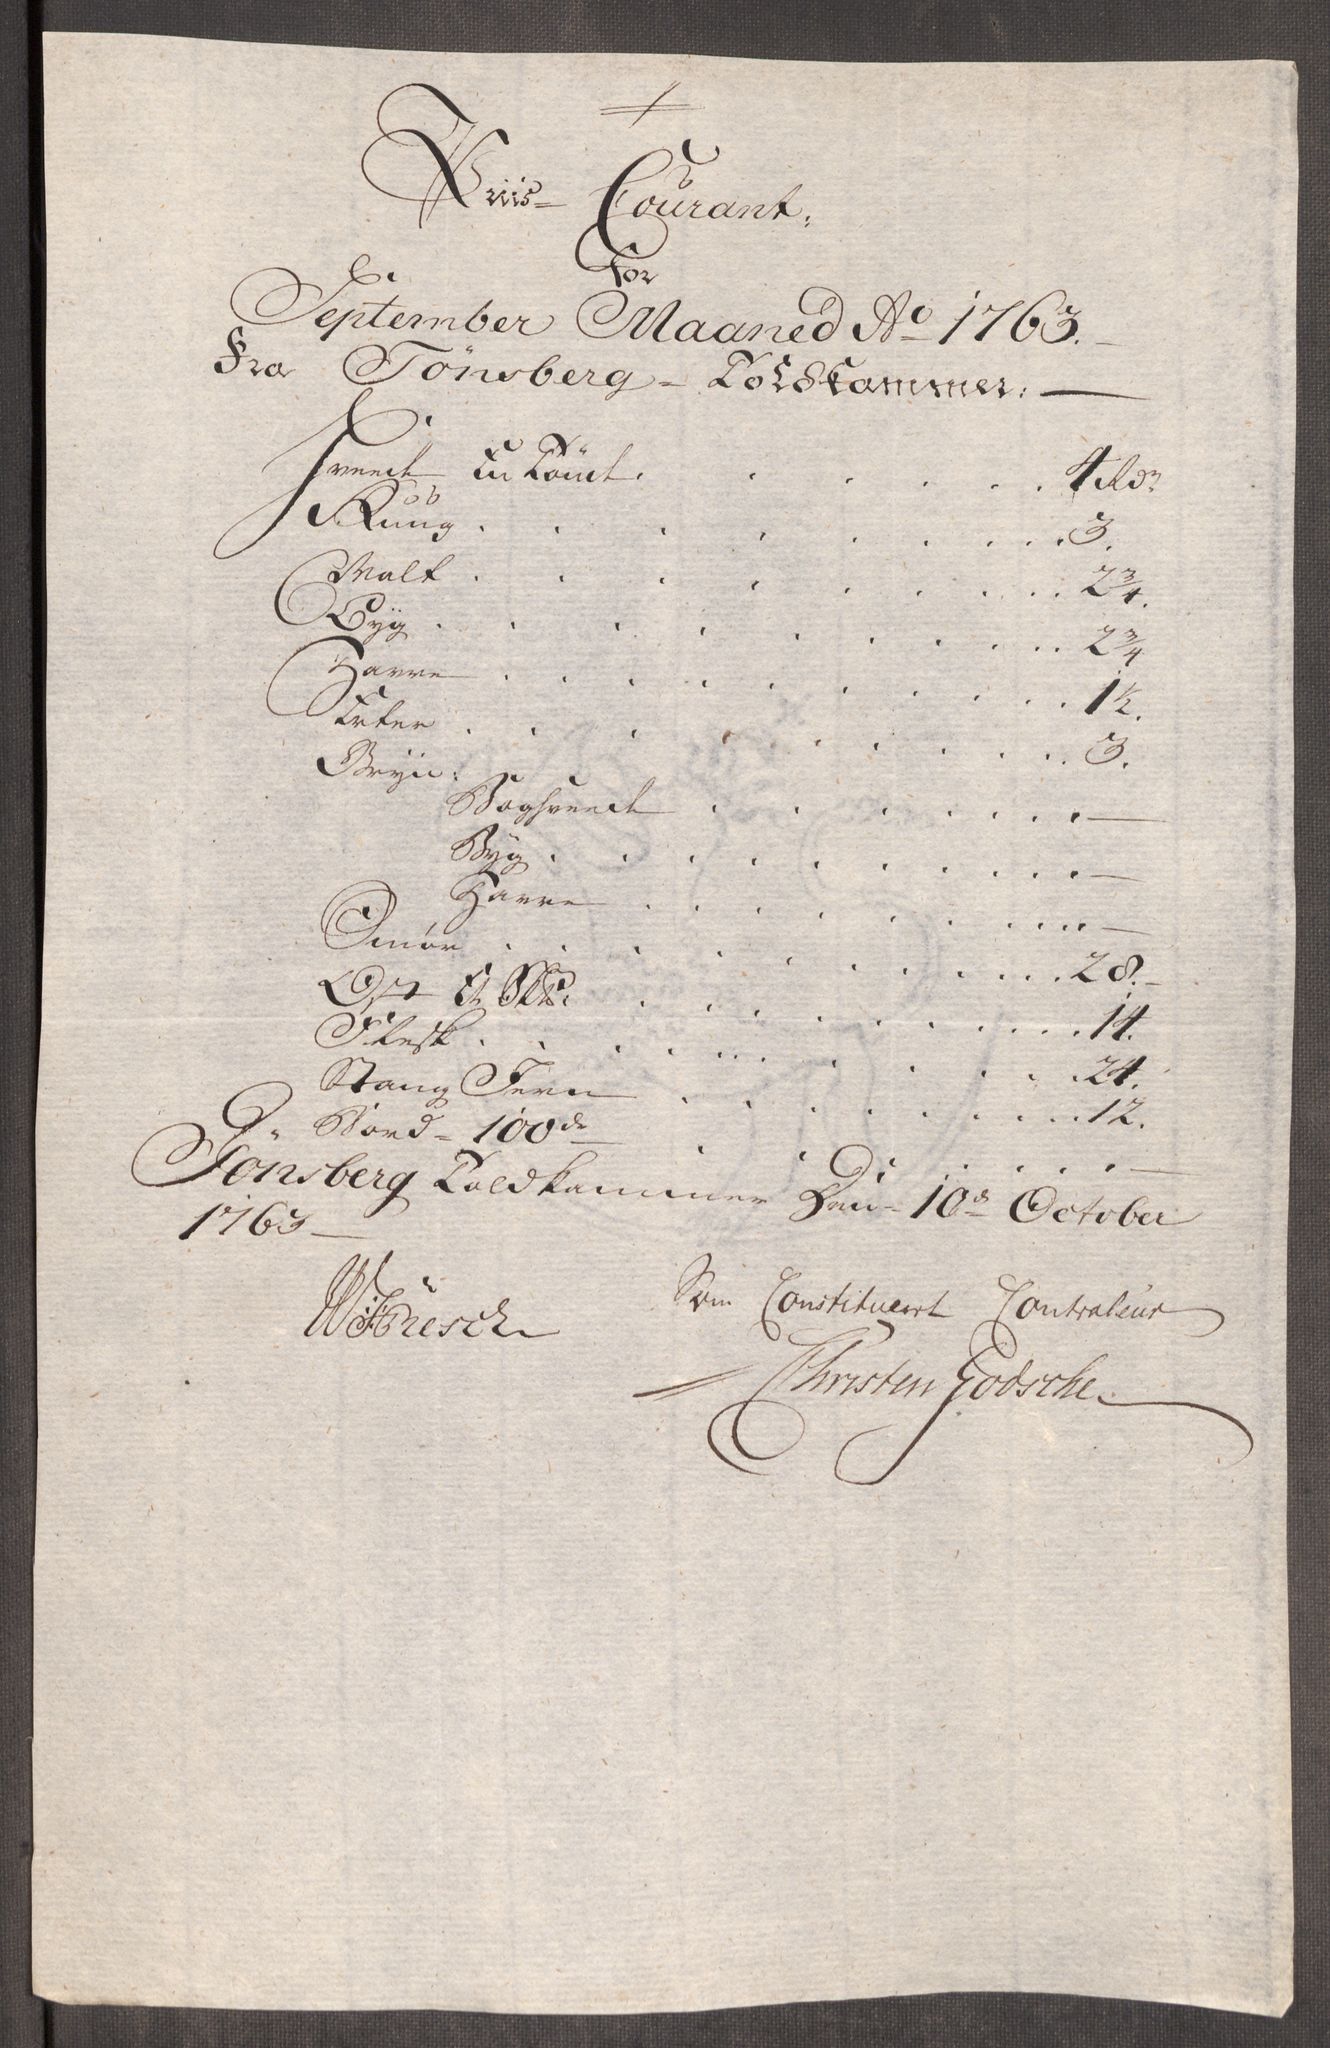 Priis- Courant.
for
September Maaned Ao 1763.
Fra Tönsberg - Toldkammer.
Hveede En Tönde . . . . . . 4 Rdr
Rüug . . . . . . . . . 3.
Malt . . . . . . . . . 2 3/4.
Byg . . . . . . . . . 2 3/4
Havre . . . . . . . . . 1 1/2.
Erter . . . . . . . . . 3.
Gryn:
Boghveede . . . . . . . . —
Byg . . . . . . . . . —
Havre . . . . . . . . . —
Smör . . . . . . . . . 28.
Ost . . . . . . . . . 14.
Flesk . . . . . . . . . 24.
Stang Jern . . . . . . . . 12.
Bord - 100de . . . . . . —
Tönsberg Toldkammer Den 10de October
1763
Som Constitueret Contraleur
Christen Godsche.